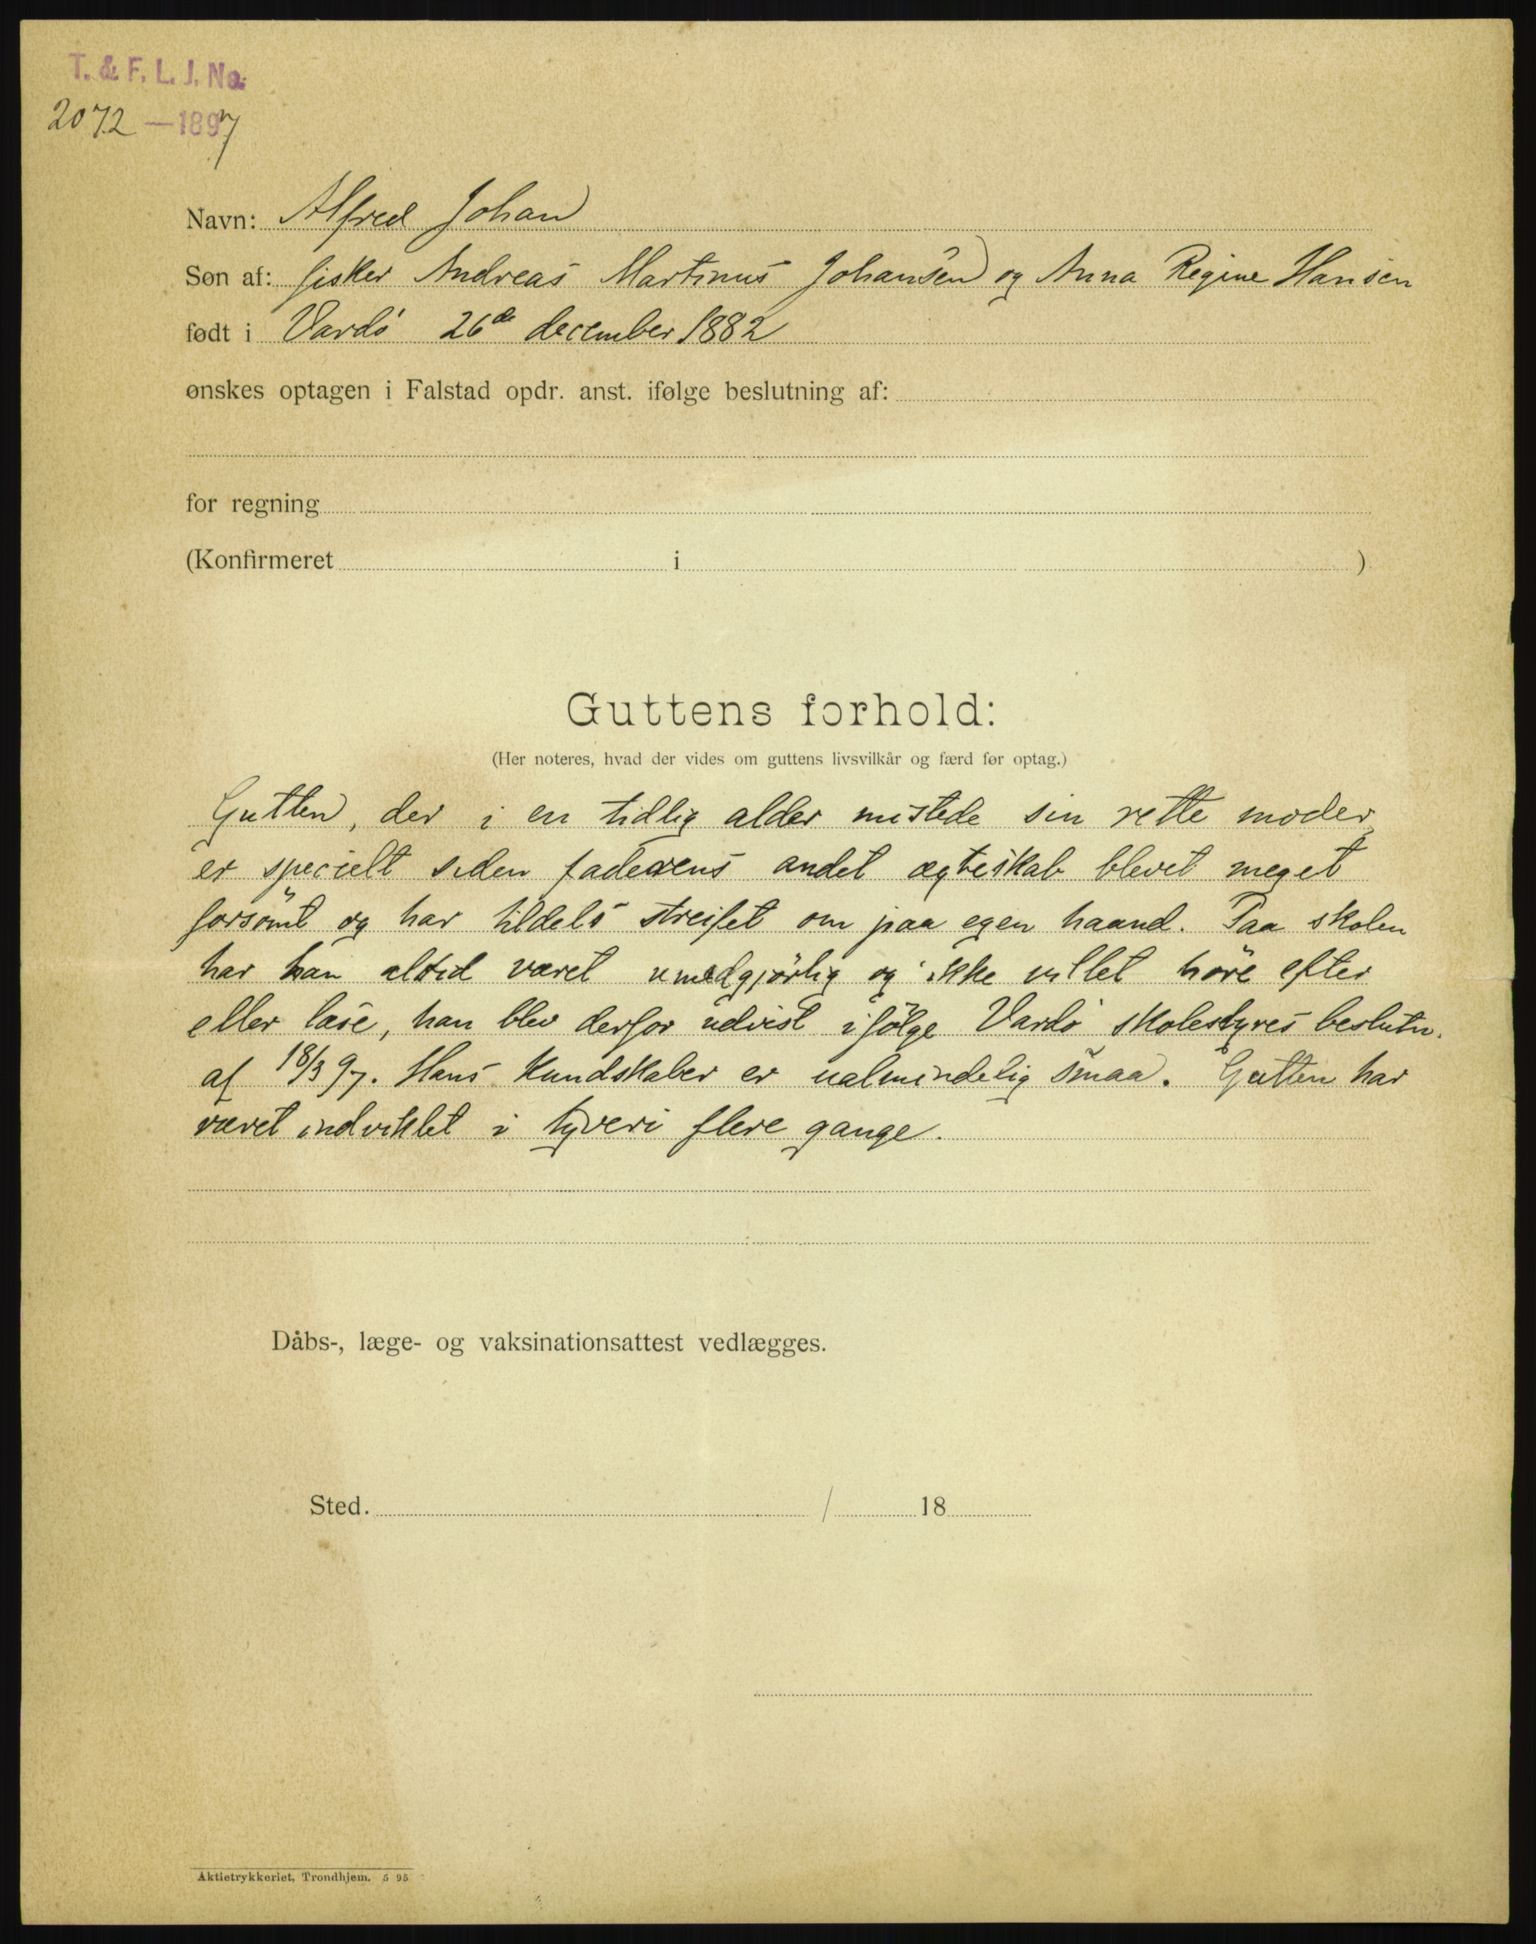 T. & F. L. J. No.
2072 —1897
Navn: Alfred Johan
Søn af: fisker Andreas Martinus Johansen og Anna Regine Hansen
født i Vardö 26de december 1882
ønskes optagen i Falstad opdr. anst. ifølge beslutning af:
for regning
(Konfirmeret i )
Guttens forhold:
(Her noteres, hvad der vides om guttens livsvilkår og færd før optag.)
Gutten, der i en tidlig alder mistede sin rette moder,
er specielt siden faderens andet ægteskab blevet meget
forsömt og har tildels streifet om paa egen haand. Paa skolen
har han altid været umedgjörlig og ikke villet höre efter
eller læse, han blev derfor udvist ifölge Vardö skolestyres beslutn.
af 18/3 97. Hans kundskaber er ualmindelig smaa. Gutten har
været indviklet i tyveri flere gange.
Dåbs-, læge- og vaksinationsattest vedlægges.
Sted. / 18
Aktietrykkeriet, Trondhjem. 5 95